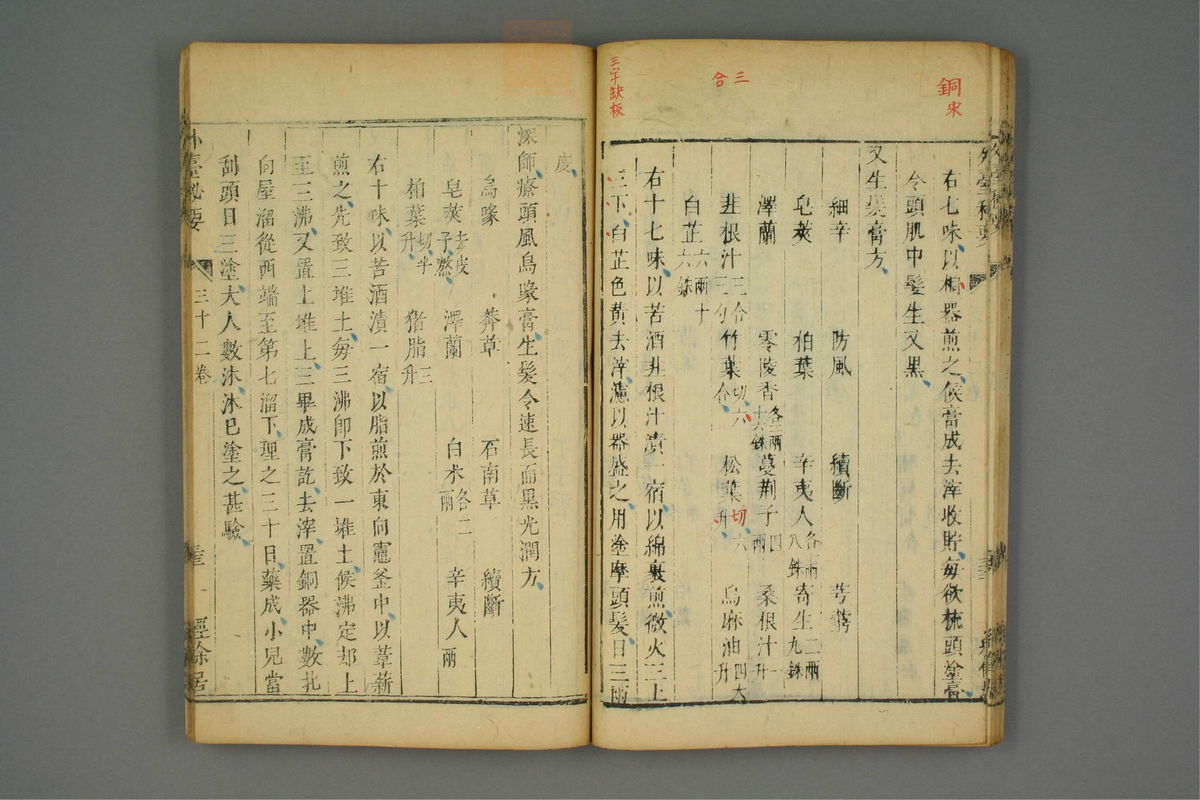 銅宋
三合
三字缺板
右七味以桐器煎之候膏成去滓收貯每欲梳頭塗膏
令頭肌中髮生又黑
又生髮膏方
細辛 防風 續斷 芎藭
皂莢 柏葉 辛夷人各一兩八銖 寄生二兩九銖
澤蘭 零陵香各二兩十六銖 蔓荆子四兩 桑根汁一升
韭根汁三合三勺 竹葉切六合 松葉切六升 烏麻油四大升
白芷六兩十六銖
右十七味以苦酒韭根汁漬一宿以綿裹煎微火三上
三下白芷色黄去滓濾以器盛之用塗摩頭髮日三兩
度
深師療頭風烏喙膏生髮令速長而黑光潤方
烏喙 莽草 石南草 續斷
皂莢去皮子熬 澤蘭 白术各二兩 辛夷人兩
柏葉切半升 猪脂三升
右十味以苦酒漬一宿以脂煎於東向竈釜中以葦薪
煎之先致三堆土每三沸即下致一堆土候沸定却上
至三沸又置上堆上三畢成膏訖去滓置銅器中數北
向屋溜從西端至第七溜下理之三十日藥成小兒當
刮頭日三塗大人數沐沐已塗之甚驗
外臺秘要
三十二卷
經餘居